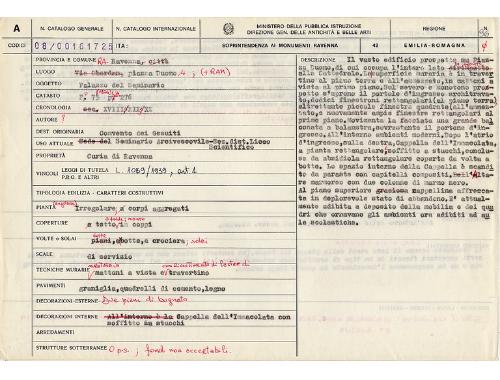 A
N. CATALOGO GENERALE
N. CATALOGO INTERNAZIONALE
MINISTERO DELLA PUBBLICA ISTRUZIONE
DIREZIONE GEN. DELLE ANTICHITÀ E BELLE ARTI
REGIONE
N.
CODICI
08/00161725
ITA:
SOPRINTENDENZA AI MONUMENTI RAVENNA
43
EMILIA-ROMAGNA
PROVINCIA E COMUNE
RA. Ravenna, città
LUOGO
piazza Duomo, 4; (+RAM)
OGGETTO
Palazzo del Seminario
CATASTO
F. 75
CRONOLOGIA
sec. XVIII/XIX/XX
AUTORE
DEST. ORIGINARIA
Convento dei Gesuiti
USO ATTUALE
Sede del Seminario Arcivescovile-Sec.dist.Liceo
Scientifico
PROPRIETÀ
Curia di Ravenna
VINCOLI
LEGGI DI TUTELA
L. 1089/1939, art. 1
P.R.G. E ALTRI
TIPOLOGIA EDILIZIA - CARATTERI COSTRUTTIVI
PIANTA
Irregolare a corpi aggregati
COPERTURE
a tetto, in coppi
VOLTE o SOLAI
piani, a botte, a crociera; solai
SCALE
di servizio
TECNICHE MURARIE
mattoni a vista e travertino
PAVIMENTI
graniglia, quadrelli di cemento, legno
DECORAZIONI ESTERNE
Due piani di bugnato
DECORAZIONI INTERNE
All'interno è la Cappella dell'Immacolata con
soffitto a stucchi
ARREDAMENTI
STRUTTURE SOTTERRANEE
Ops; fondi non accertabili.
DESCRIZIONE:
Il vasto edificio prospetta su Piazza
Duomo, di cui occupa l'intero lato
alla Cattedrale. La superficie muraria è in travertino
al piano terra e all'ammezzato, in mattoni a
vista al primo piano. Sul severo e monotono prospetto
s'aprono il portale d'ingresso architravato,
dodici finestroni rettangolari (al piano terra)
altrettante piccole finestre quadrate all'ammezzato,
e nuovamente ampie finestre rettangolari al
primo piano. Movimenta la facciata una grande balconata
a balaustra, sovrastante il portale d'ingresso,
all'interno ambienti moderni. Dopo l'atrio
d'ingresso, sulla destra, Cappella dell'Immacolata,
a pianta rettangolare, soffitto a stucchi, conclusa
da absidiola rettangolare coperta da volta a
botte. Lo spazio interno della Cappella è scandito
da paraste con capitelli compositi. Sull'altare
marmoreo con due colonne di marmo nero.
Al piano superiore graziosa cappellina affrescata
in deplorevole stato di abbandono. E' attualmente
adibita a deposito della mobilia e dei quadri
che ornavano gli ambienti ora adibiti ad aule
scolastiche.